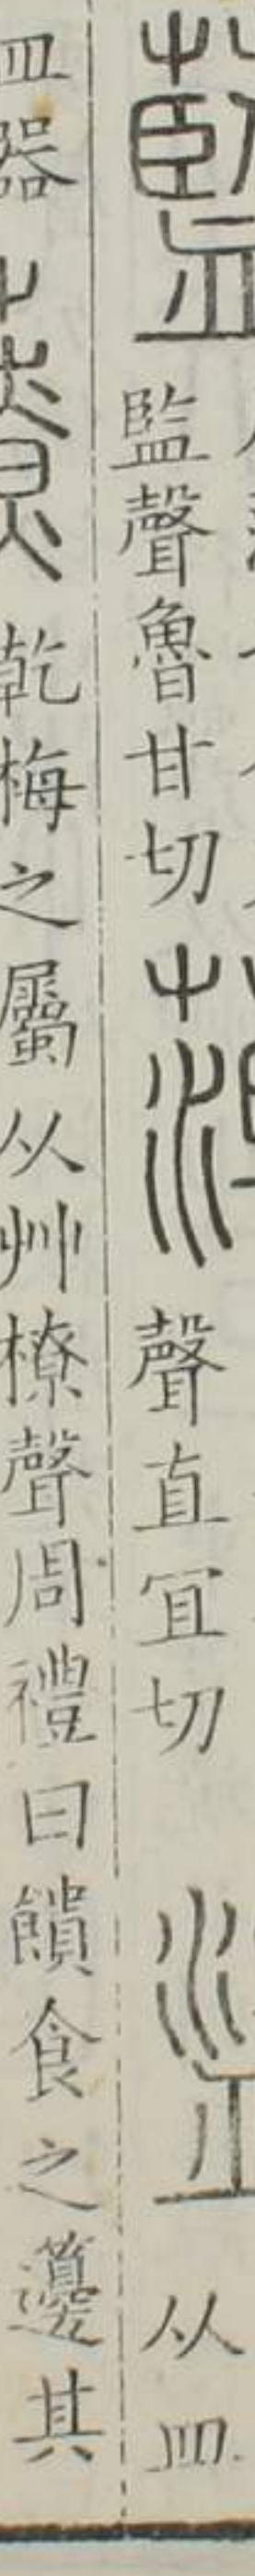 監聲魯甘切 聲直宜切 从皿
皿器 乾梅之屬从艸橑聲周禮曰饋食之籩其